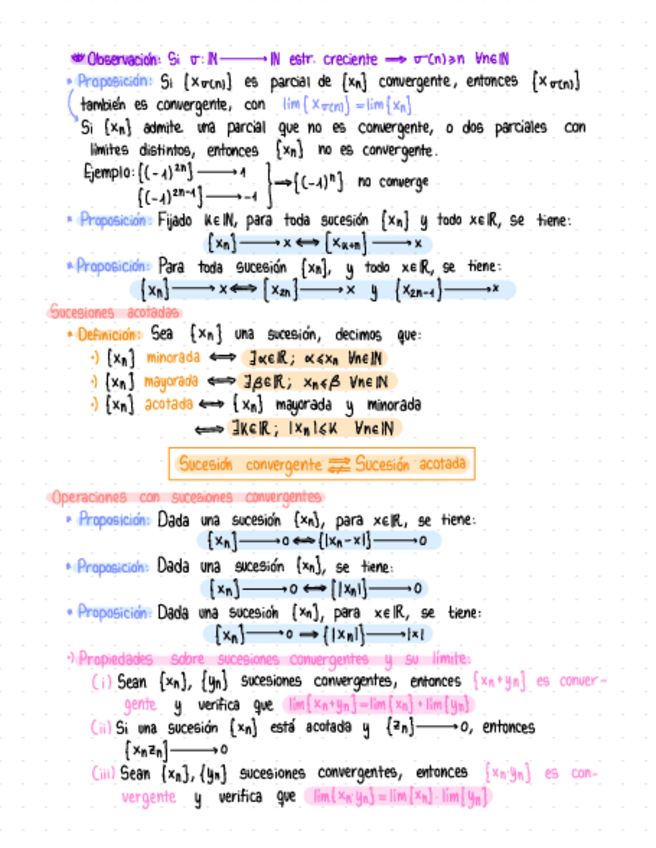 Observación: Si σ: ℕ ⟶ ℕ estr. creciente ⟹ σ(n)≥n ∀n∈ℕ
• Proposición: Si {xσ(n)} es parcial de {xn} convergente, entonces {xσ(n)}
también es convergente, con lim{xσ(n)}=lim{xn}
Si {xn} admite una parcial que no es convergente, o dos parciales con
límites distintos, entonces {xn} no es convergente.
Ejemplo: {(-1)²ⁿ} ⟶ 1
{(-1)²ⁿ⁻¹} ⟶ -1 } ⟹ {(-1)ⁿ} no converge
• Proposición: Fijado K∈ℕ, para toda sucesión {xn} y todo x∈ℝ, se tiene:
{xn} ⟶ x ⟺ {xK+n} ⟶ x
• Proposición: Para toda sucesión {xn}, y todo x∈ℝ, se tiene:
{xn} ⟶ x ⟺ {x2n} ⟶ x y {x2n-1} ⟶ x
Sucesiones acotadas
• Definición: Sea {xn} una sucesión, decimos que:
·) {xn} minorada ⟺ ∃α∈ℝ; α≤xn ∀n∈ℕ
·) {xn} mayorada ⟺ ∃β∈ℝ; xn≤β ∀n∈ℕ
·) {xn} acotada ⟺ {xn} mayorada y minorada
⟺ ∃K∈ℝ; |xn|≤K ∀n∈ℕ
Sucesión convergente ⇏⃖⟹ Sucesión acotada
Operaciones con sucesiones convergentes
• Proposición: Dada una sucesión {xn}, para x∈ℝ, se tiene:
{xn} ⟶ 0 ⟺ {|xn-x|} ⟶ 0
• Proposición: Dada una sucesión {xn}, se tiene:
{xn} ⟶ 0 ⟺ {|xn|} ⟶ 0
• Proposición: Dada una sucesión {xn}, para x∈ℝ, se tiene:
{xn} ⟶ 0 ⟹ {|xn|} ⟶ |x|
·) Propiedades sobre sucesiones convergentes y su límite:
(i) Sean {xn}, {yn} sucesiones convergentes, entonces {xn+yn} es conver-
gente y verifica que lim{xn+yn}=lim{xn}+lim{yn}
(ii) Si una sucesión {xn} está acotada y {zn} ⟶ 0, entonces
{xnzn} ⟶ 0
(iii) Sean {xn}, {yn} sucesiones convergentes, entonces {xn·yn} es con-
vergente y verifica que lim{xn·yn}=lim{xn}·lim{yn}